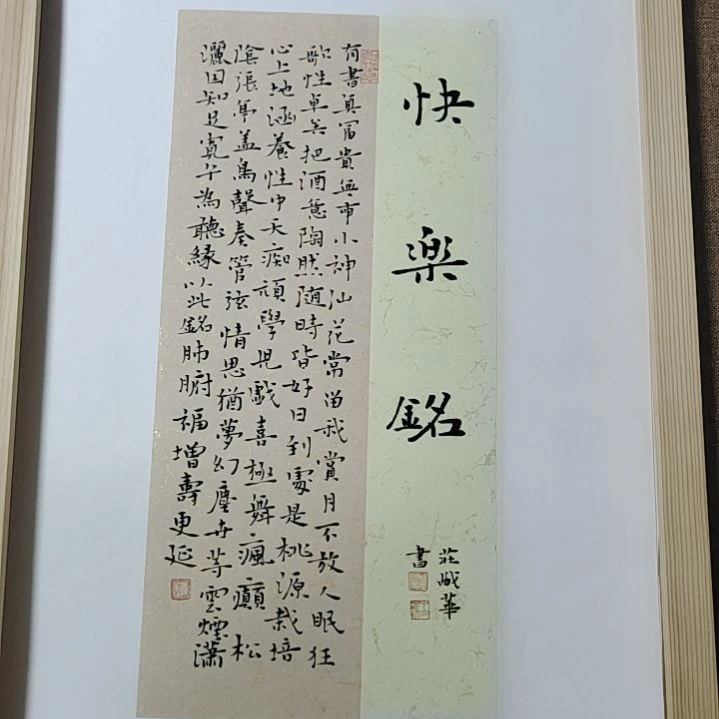 快楽銘
莊
華
書
有書真富貴無事小神仙花當留我賞月不放人眠狂
歌性卓矣把酒意陶然随時皆好日到處是桃源栽培
心上地涵養性中天痴頑學児戲喜極舞瘋癲松
陰張亭蓋鳥聲奏管弦情思猶夢幻塵世等雲煙瀟
灑因知足寬平為聽緣以此銘肺腑福增壽更延